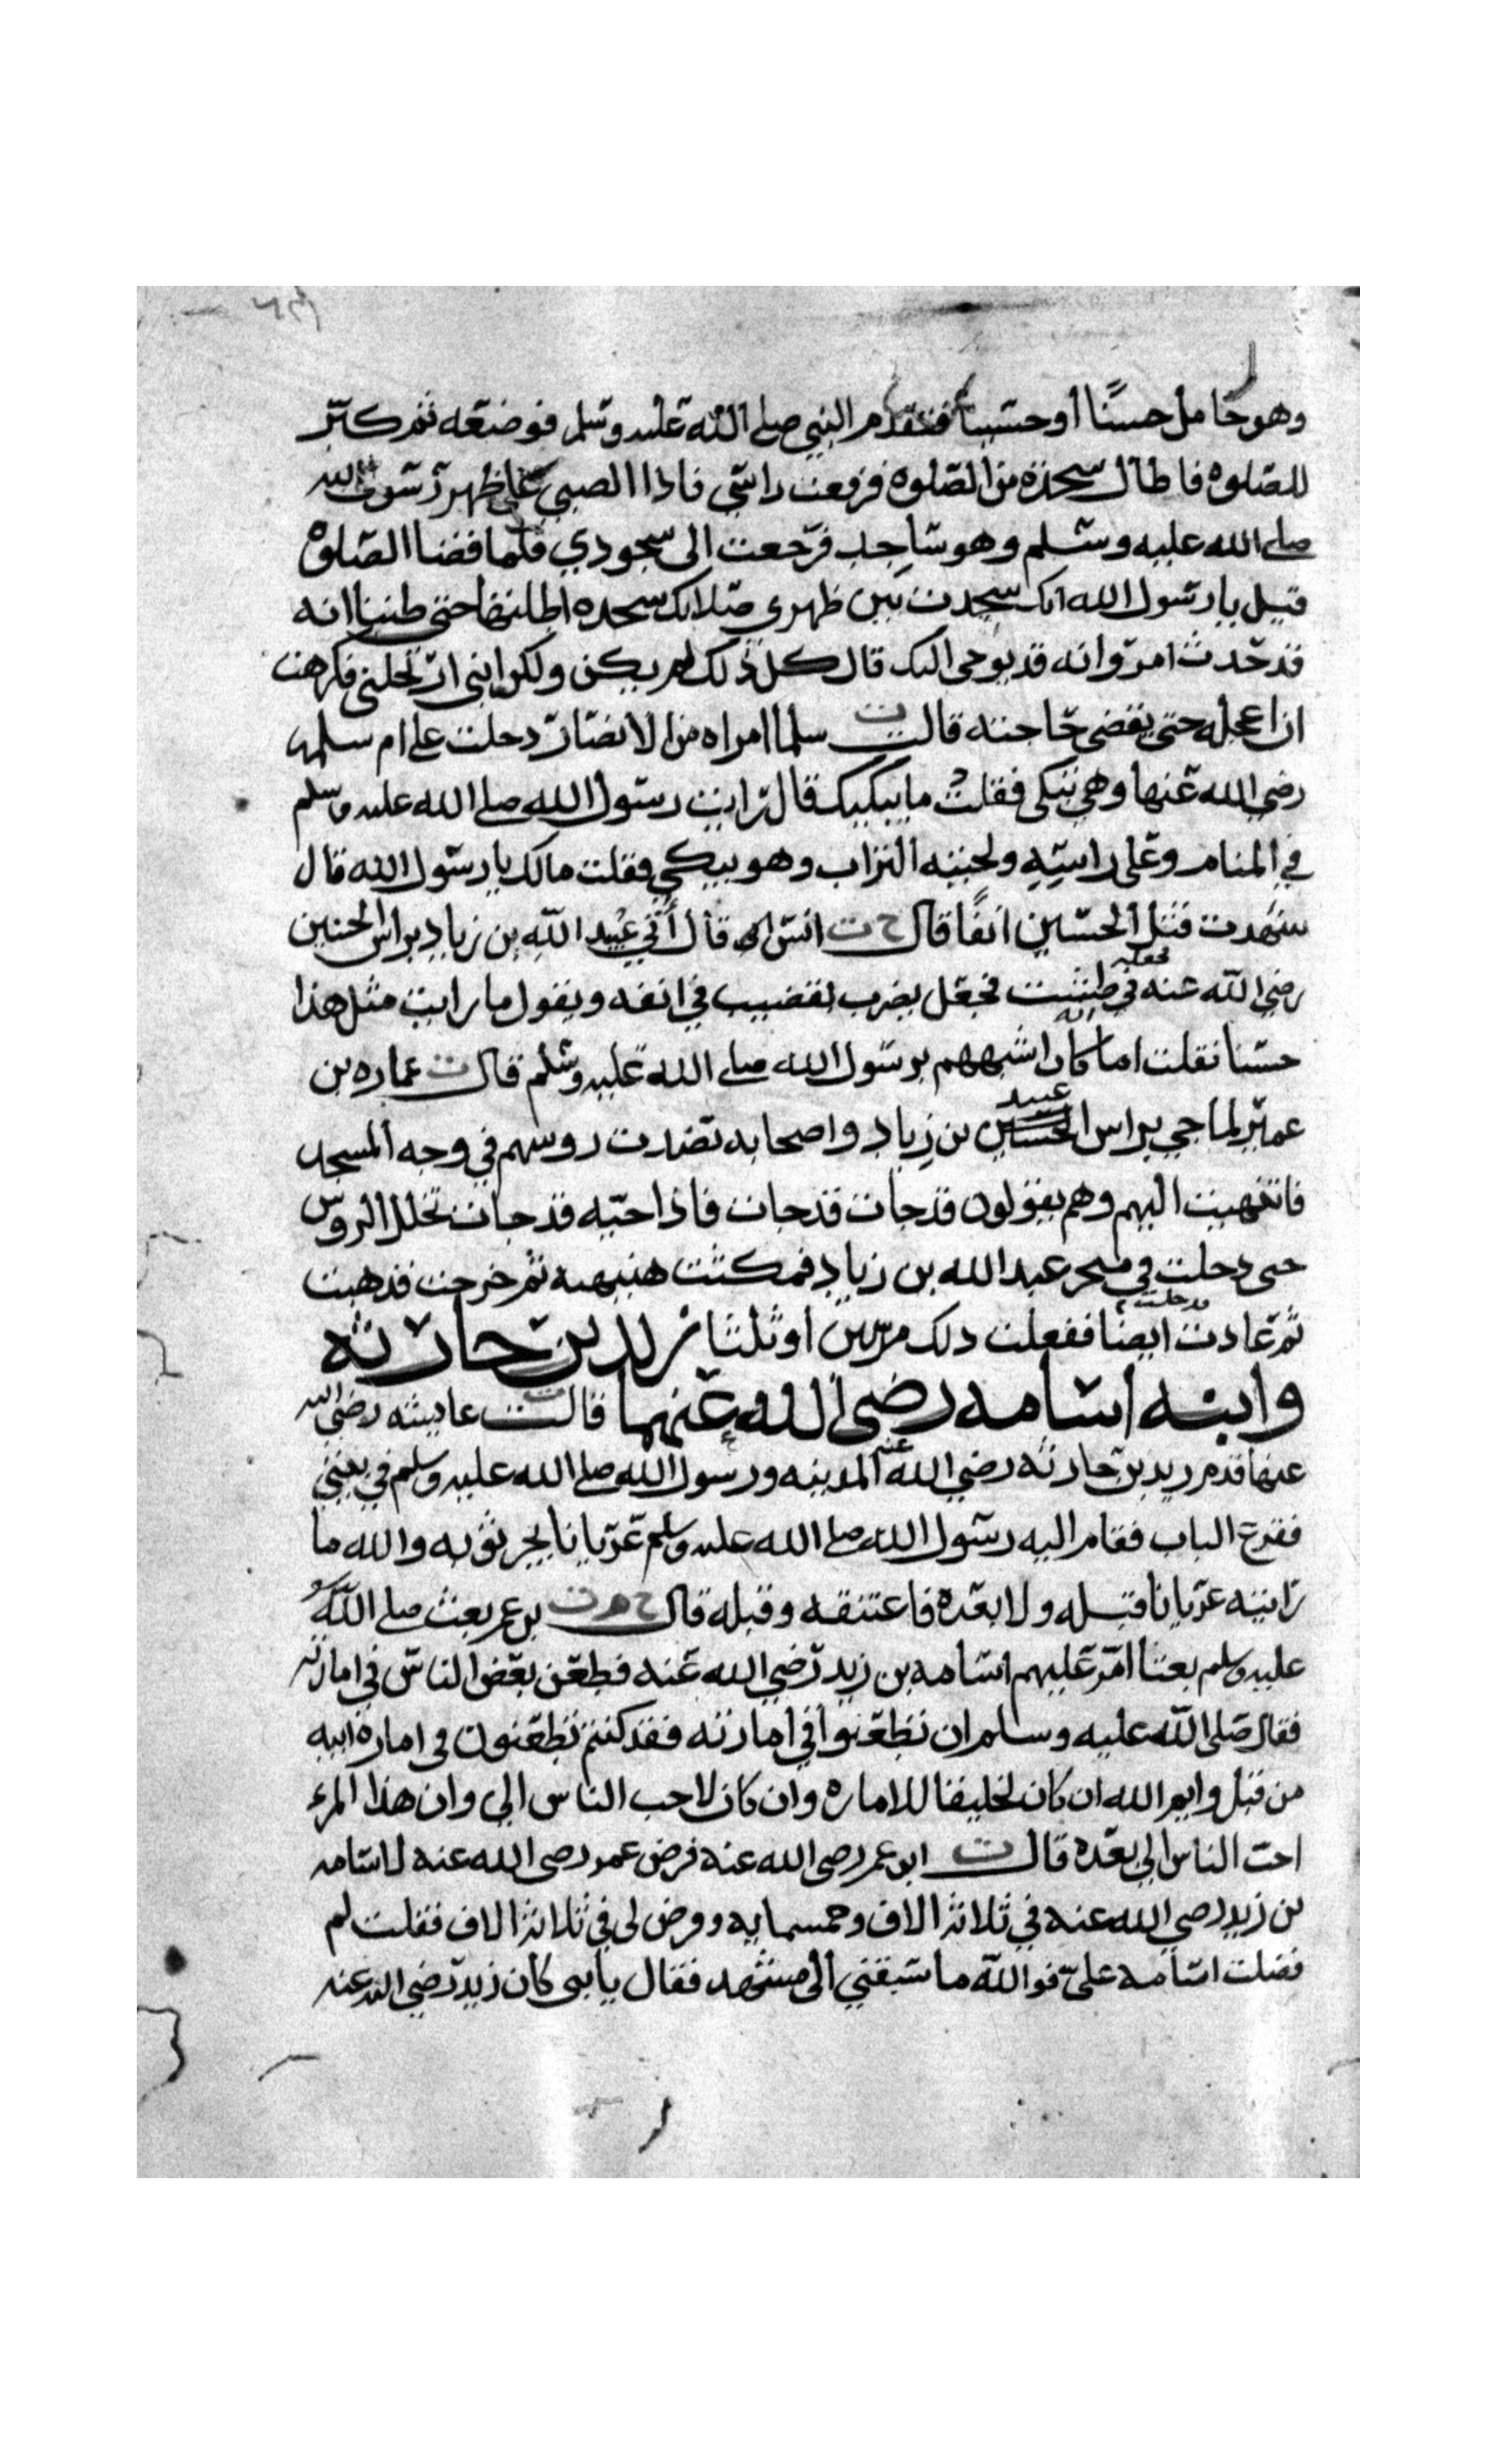 وهو حامل حسنا أو حسينا فتقدم النبي صلى الله عليه وسلم فوضعه ثم كبر
للصلوة فاطال سجدة من الصلوة فرفعت راسي فاذا الصبي على ظهر رسول الله
صلى الله عليه وسلم وهو ساجد فرجعت الى سجودي فلما قضا الصلوة
قيل يا رسول الله انك سجدت بين ظهري صلاتك سجده اطلتها حتى ظننا انه
قد حدث امر وانه قد يوحى اليك قال كل ذلك لم يكن ولكن ابني ارتحلني فكرهت
ان اعجله حتى يقضي حاجته قالت ت سلما امراه من الانصار دخلت على ام سلمه
رضي الله عنها وهي تبكي فقلت ما يبكيك قال رايت رسول الله صلى الله عليه وسلم
في المنام وعلى راسه ولحيته التراب وهو يبكي فقلت مالك يا رسول الله قال
شهدت قتل الحسين انفا قال خ ت انس قال أتي عبيد الله بن زياد براس الحسين
رضي الله عنه فجعله في طست فجعل يضرب بقضيب في انفه ويقول ما رايت مثل هذا
حسنا فقلت اما انه كان اشبههم برسول الله صلى الله عليه وسلم قال ت عماره بن
عمير لما جي براس عبيد الله بن زياد واصحابه نضدت روسهم في وجه المسجد
فانتهيت اليهم وهم يقولون قد جات قد جات فاذا حيه قد جات تخلل الروس
حتى دخلت في منخر عبد الله بن زياد فمكثت هنيهه ثم خرجت فذهبت
ثم عادت فدخلت ايضا ففعلت ذلك مرتين او ثلثا زيد بن حارثه
وابنه اسامه رضي الله عنهما قالت ت عايشه رضي الله
عنها قدم زيد بن حارثه رضي الله عنه المدينه ورسول الله صلى الله عليه وسلم في بيتي
فقرع الباب فقام اليه رسول الله صلى الله عليه وسلم عريانا يجر ثوبه والله ما
رايته عريانا قبله ولا بعده فاعتنقه وقبله قال خ م ت بن عمر بعث صلى الله
عليه وسلم بعثا امر عليهم اسامه بن زيد رضي الله عنه فطعن بعض الناس في امارته
فقال صلى الله عليه وسلم ان تطعنوا في امارته فقد كنتم تطعنون في اماره ابيه
من قبل وايم الله ان كان لخليقا للاماره وان كان لاحب الناس الي وان هذا المرء
احب الناس الي بعده قال ت ابو عمر رضي الله عنه فرض عمر رضي الله عنه لاسامه
بن زيد رضي الله عنه في ثلاثة الاف وخمسمايه وفرض لي في ثلاثة الاف فقلت لم
فضلت اسامه علي فوالله ما سبقني الى مشهد فقال يا بني كان زيد رضي الله عنه